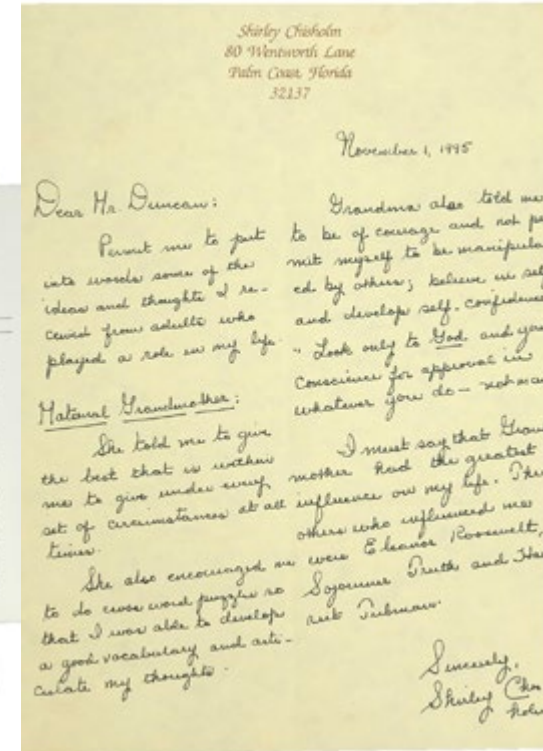 Shirley Chisholm
80 Wentworth Lane
Palm Coast, Florida
32137
November 1, 1995
Dear Mr. Duncan:
Permit me to put
into words some of the
ideas and thoughts I re-
ceived from adults who
played a role in my life.
Maternal Grandmother:
She told me to give
the best that is within
me to give under every
set of circumstances at all
times.
She also encouraged me
to do cross word puzzles so
that I was able to develop
a good vocabulary and arti-
culate my thoughts.
Grandma also told me
to be of courage and not per
mit myself to be manipula
ed by others; believe in self
and develop self-confidence
" Look only to God and your
Conscience for approval in
whatever you do — not man
I must say that Grand
mother had the greatest
influence on my life.
others who influenced me
were Eleanor Roosevelt,
Sojourner Truth and Har
riet Tubman.
Sincerely,
Shirley Chis
holm